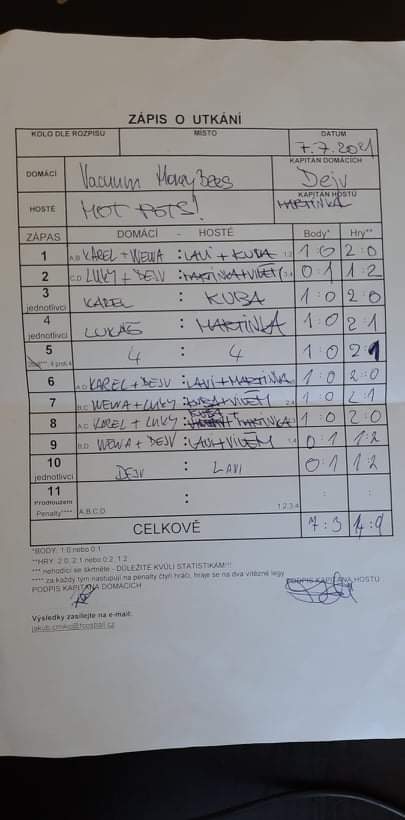 ZÁPIS O UTKÁNÍ
KOLO DLE ROZPISU MÍSTO DATUM
7.7.2021
DOMÁCÍ KAPITÁN DOMÁCÍCH
Vacuum Dejv
HOSTÉ HOT POTS! KAPITÁN HOSTŮ
MARTINKA
ZÁPAS DOMÁCÍ - HOSTÉ Body* Hry**
1 A,B KAREL + WEWA : LAVI + KUBA 1,2 1:0 2:0
2 C,D LUKY + DEJV : MARTINKA+VILÉM 0:1 1:2
3 jednotlivci KAREL : KUBA 1:0 2:0
4 jednotlivci LUKÁŠ : MARTINKA 1:0 2:1
5 4 : 4 1:0 2:1
6 A,D KAREL + DEJV : LAVI+MARTINKA 1:0 2:0
7 B,C WEWA + LUKY : KUBA+VILÉM 1:0 2:1
8 A,C KAREL + LUKY : KUBA + MARTINKA 1:0 2:0
9 B,D WEWA + DEJV : LAVI+VILÉM 0:1 1:2
10 jednotlivci DEJV : LAVI 0:1 1:2
11 Prodloužení : : :
Penalty**** A,B,C,D 1,2,3,4
CELKOVĚ 7:3 14:9
*BODY: 1:0 nebo 0:1
**HRY: 2:0, 2:1 nebo 0:2, 1:2
*** nehodící se škrtněte - DŮLEŽITÉ KVŮLI STATISTIKÁM!!!
**** za každý tým nastupují na penalty čtyři hráči, hraje se na dva vítězné legy
PODPIS KAPITÁNA DOMÁCÍCH PODPIS KAPITÁNA HOSTŮ
Výsledky zasílejte na e-mail: